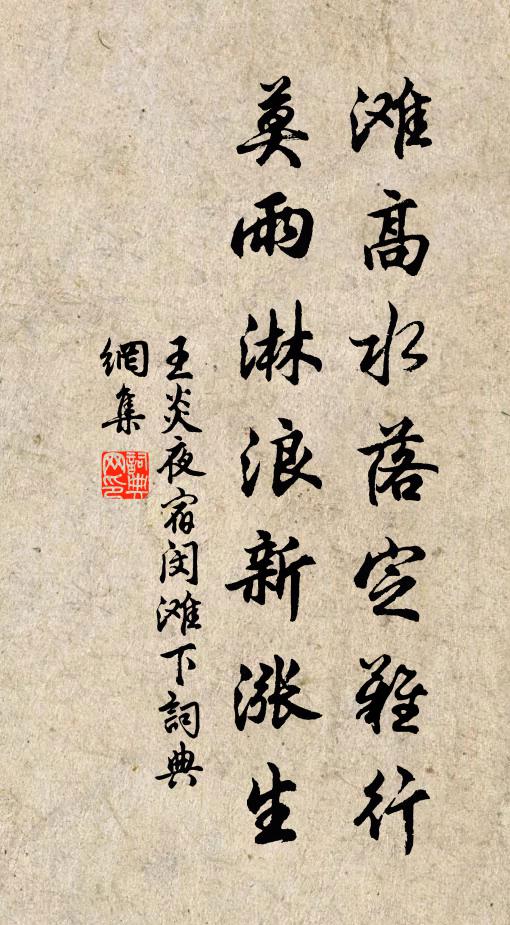 滩高水落定难行
莫雨淋浪新漲生
王炎夜宿闵滩下詞典
網集
詞典網印